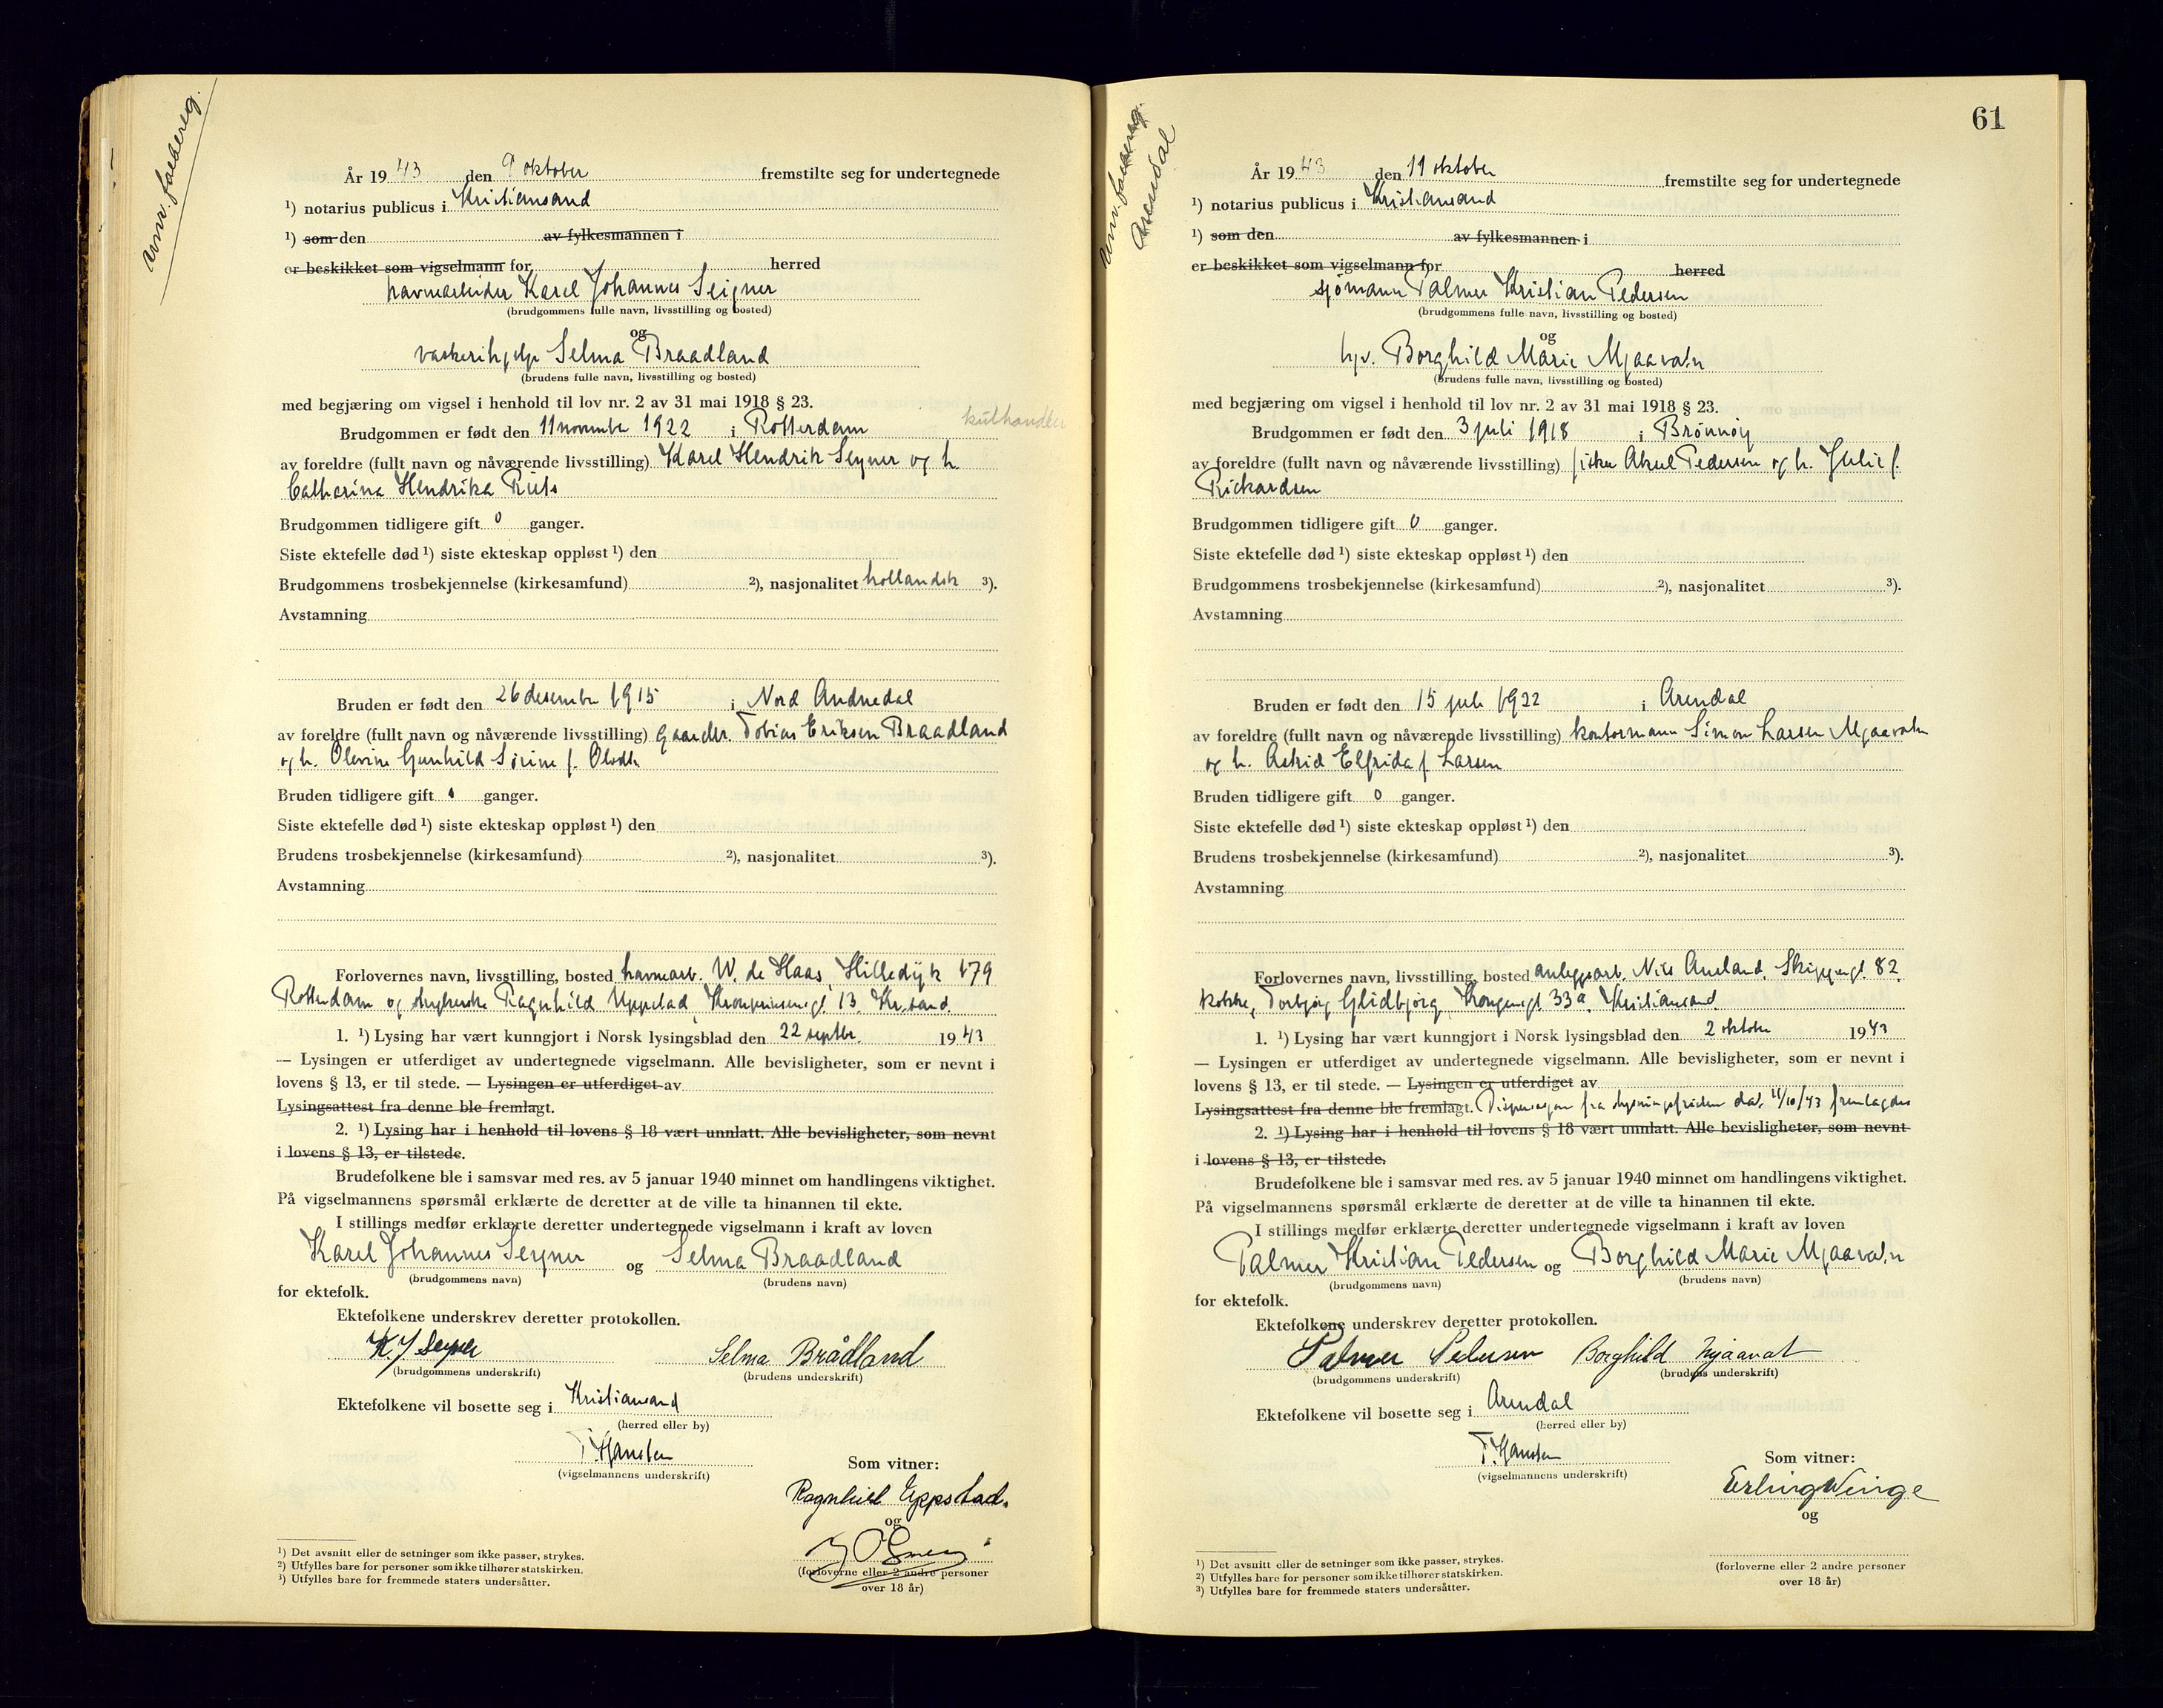 År 1943 den 9 oktober fremstilte seg for undertegnede
¹) notarius publicus i Kristiansand
¹) som den av fylkesmannen i
er beskikket som vigselmann for herred
havnearbeider Karel Johannes Seijner
(brudgommens fulle navn, livsstilling og bosted)
og
vaskerihjelp Selma Braadland
(brudens fulle navn, livsstilling og bosted)
med begjæring om vigsel i henhold til lov nr. 2 av 31 mai 1918 § 23.
kulhandler
Brudgommen er født den 11 november 1922 i Rotterdam
av foreldre (fullt navn og nåværende livsstilling) Karel Hendrik Seyner og h.
Catharina Hendrika
Brudgommen tidligere gift 0 ganger.
Siste ektefelle død ¹) siste ekteskap oppløst ¹) den
Brudgommens trosbekjennelse (kirkesamfund) ²), nasjonalitet hollandsk ³).
Avstamning
Bruden er født den 26 desember 1915 i Nord Audnedal
av foreldre (fullt navn og nåværende livsstilling) Tobias Eriksen Braadland
og h. Olevine Gunhild Sirine f.
Bruden tidligere gift ganger.
Siste ektefelle død ¹) siste ekteskap oppløst ¹) den
Brudens trosbekjennelse (kirkesamfund) ²), nasjonalitet ³).
Avstamning
Forlovernes navn, livsstilling, bosted havnearb. W. de Haas, Hilledijk 179
Rotterdam og Ragnhild Uppstad, Kronprinsensgt. 13. Kr.sand.
1. ¹) Lysing har vært kunngjort i Norsk lysingsblad den 22 septbr. 1943
— Lysingen er utferdiget av undertegnede vigselmann. Alle bevisligheter, som er nevnt i
lovens § 13, er til stede. — Lysingen er utferdiget av
Lysingsattest fra denne ble fremlagt.
2. ¹) Lysing har i henhold til lovens § 18 vært unnlatt. Alle bevisligheter, som nevnt
i lovens § 13, er tilstede.
Brudefolkene ble i samsvar med res. av 5 januar 1940 minnet om handlingens viktighet.
På vigselmannens spørsmål erklærte de deretter at de ville ta hinannen til ekte.
I stillings medfør erklærte deretter undertegnede vigselmann i kraft av loven
Karel Johannes Seyner og Selma Braadland
(brudgommens navn) (brudens navn)
for ektefolk.
Ektefolkene underskrev deretter protokollen.
K J Seyner Selma Brådland
(brudgommens underskrift) (brudens underskrift)
Ektefolkene vil bosette seg i Kristiansand
(herred eller by)
T. Hansten
(vigselmannens underskrift)
Som vitner:
Ragnhild Uppstad.
og
(forloverne eller 2 andre personer
over 18 år)
¹) Det avsnitt eller de setninger som ikke passer, strykes.
²) Utfylles bare for personer som ikke tilhører statskirken.
³) Utfylles bare for fremmede staters undersåtter.
61
Arendal
År 1943 den 11 oktober fremstilte seg for undertegnede
¹) notarius publicus i Kristiansand
¹) som den av fylkesmannen i
er beskikket som vigselmann for herred
sjømann Palmer Kristian Pedersen
(brudgommens fulle navn, livsstilling og bosted)
og
hjv. Borghild Marie Mjaavatn
(brudens fulle navn, livsstilling og bosted)
med begjæring om vigsel i henhold til lov nr. 2 av 31 mai 1918 § 23.
Brudgommen er født den 3 juli 1918 i Brønnøy
av foreldre (fullt navn og nåværende livsstilling) fisker Aksel Pedersen og h. Julie f.
Rickardsen
Brudgommen tidligere gift 0 ganger.
Siste ektefelle død ¹) siste ekteskap oppløst ¹) den
Brudgommens trosbekjennelse (kirkesamfund) ²), nasjonalitet ³).
Avstamning
Bruden er født den 15 juli 1922 i Arendal
av foreldre (fullt navn og nåværende livsstilling) kontormann Simon Larsen Mjaavatn
og h. Astrid Elfrida f. Larsen
Bruden tidligere gift 0 ganger.
Siste ektefelle død ¹) siste ekteskap oppløst ¹) den
Brudens trosbekjennelse (kirkesamfund) ²), nasjonalitet ³).
Avstamning
Forlovernes navn, livsstilling, bosted anleggsarb. Nils Aueland, Skippergt. 82.
Torbjørg Glidbjørg, Kongensgt. 33a. Kristiansand.
1. ¹) Lysing har vært kunngjort i Norsk lysingsblad den 2 oktober 1943
— Lysingen er utferdiget av undertegnede vigselmann. Alle bevisligheter, som er nevnt i
lovens § 13, er til stede. — Lysingen er utferdiget av
Lysingsattest fra denne ble fremlagt. Dispensasjon fra lysningsfristen dat. 11/10/43 fremlagdes
2. ¹) Lysing har i henhold til lovens § 18 vært unnlatt. Alle bevisligheter, som nevnt
i lovens § 13, er tilstede.
Brudefolkene ble i samsvar med res. av 5 januar 1940 minnet om handlingens viktighet.
På vigselmannens spørsmål erklærte de deretter at de ville ta hinannen til ekte.
I stillings medfør erklærte deretter undertegnede vigselmann i kraft av loven
Palmer Kristian Pedersen og Borghild Marie Mjaavatn
(brudgommens navn) (brudens navn)
for ektefolk.
Ektefolkene underskrev deretter protokollen.
Palmer Pedersen Borghild Mjaavatn
(brudgommens underskrift) (brudens underskrift)
Ektefolkene vil bosette seg i Arendal
(herred eller by)
T. Hansten
(vigselmannens underskrift)
Som vitner:
Erling Winge
og
(forloverne eller 2 andre personer
over 18 år)
¹) Det avsnitt eller de setninger som ikke passer, strykes.
²) Utfylles bare for personer som ikke tilhører statskirken.
³) Utfylles bare for fremmede staters undersåtter.